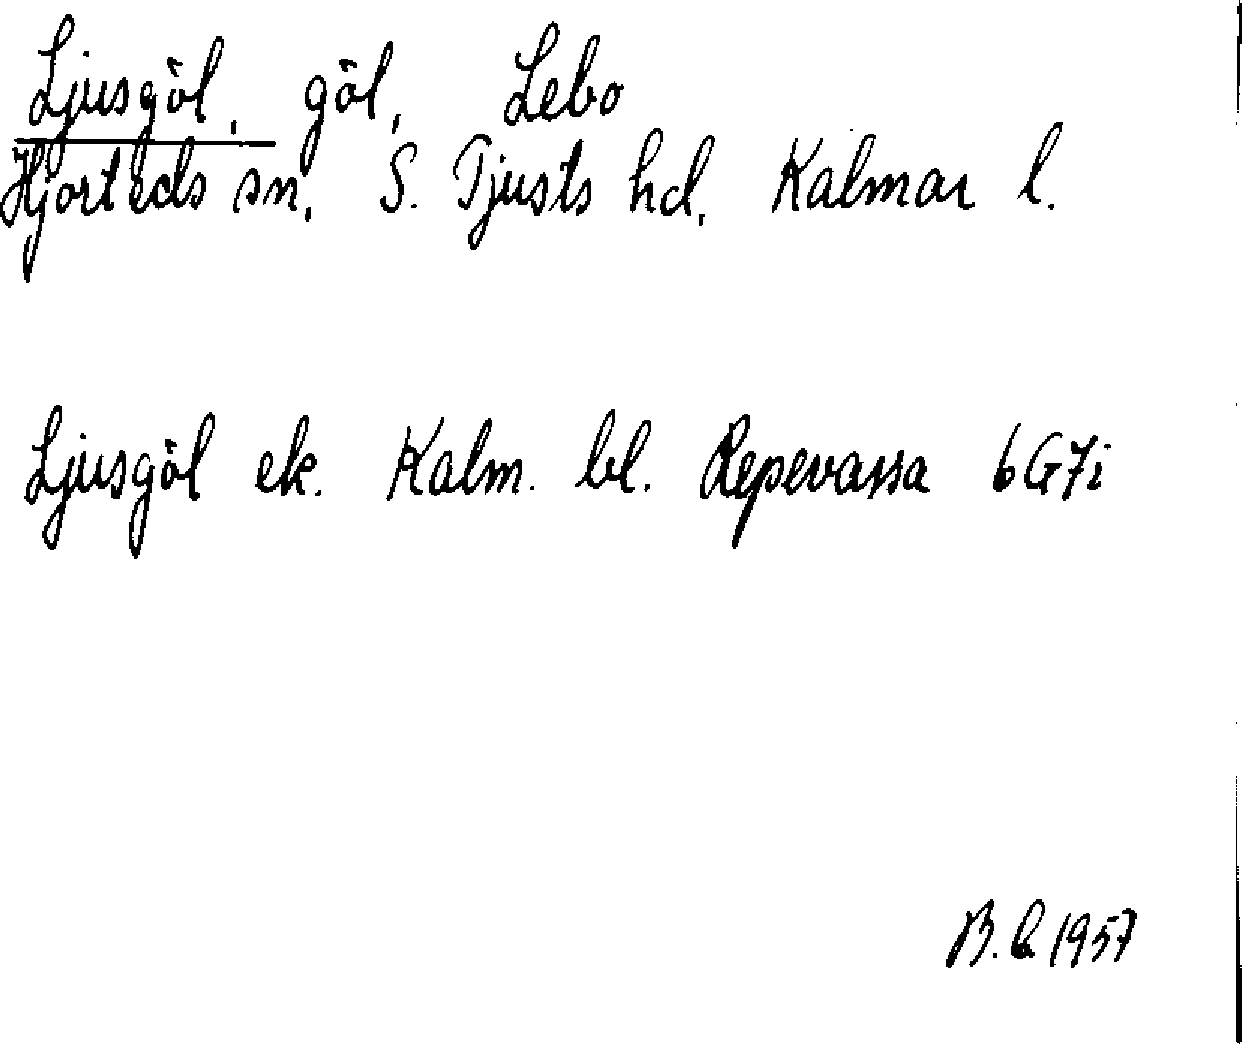 Ljusgöl, göl, Lebo
Hjorteds sn, S. Tjusts hd, Kalmar l.
Ljusgöl ek. Kalm. bl. Repevassa 6G7i
B. 1957